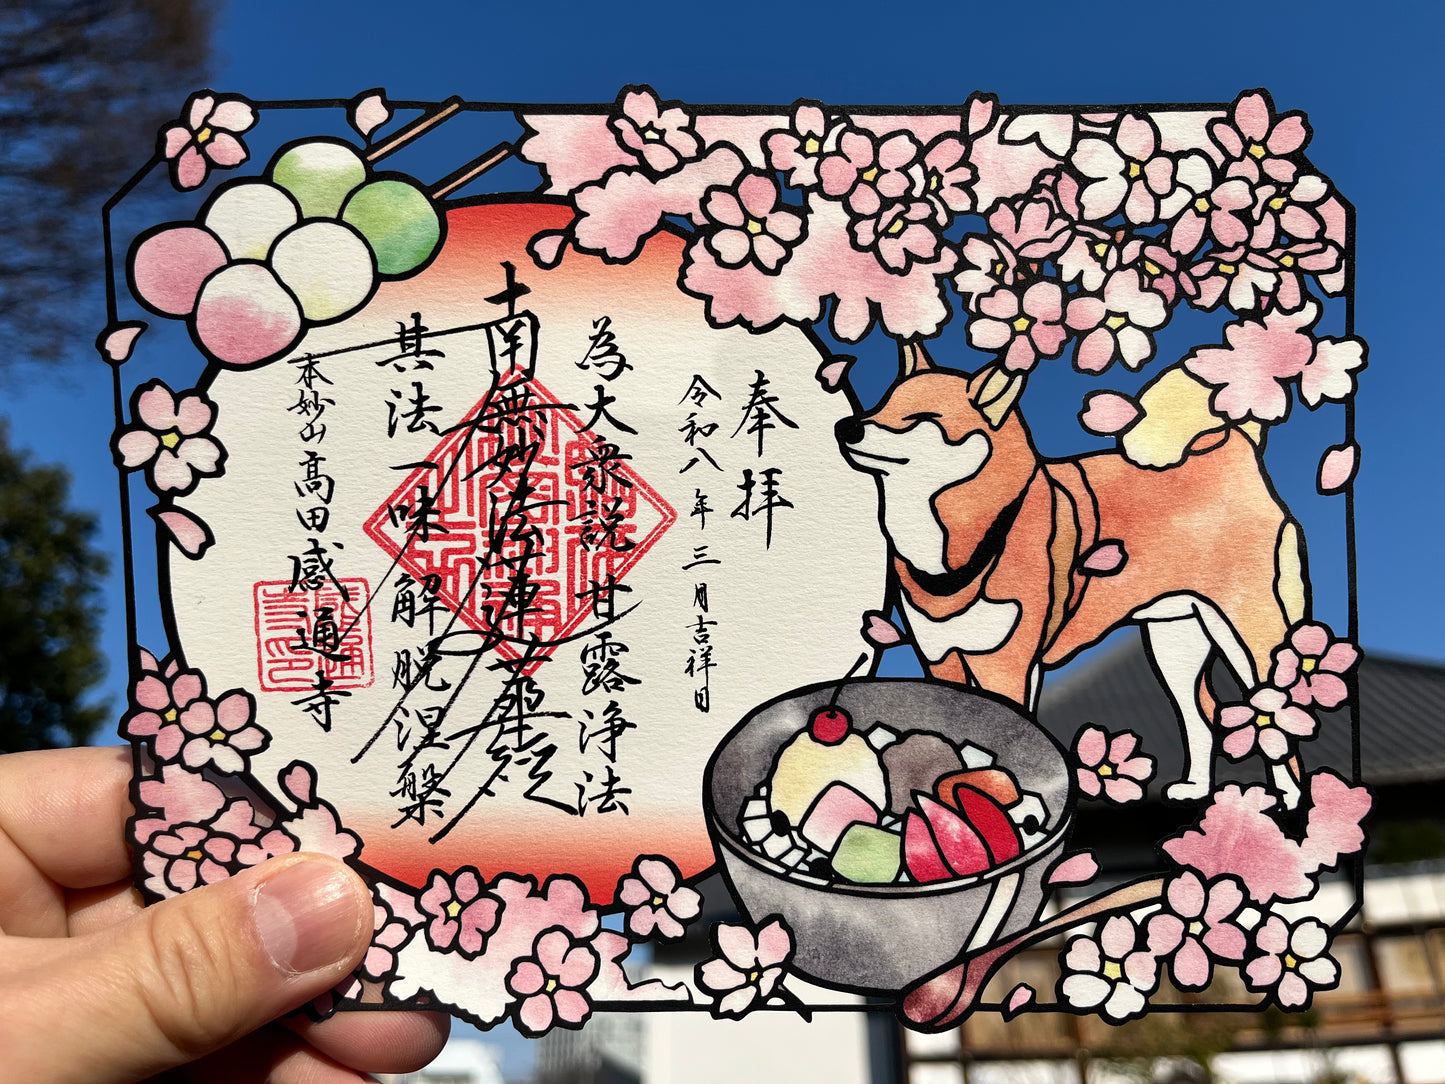 奉拝
令和八年三月吉祥日
為大衆説甘露浄法
南無妙法蓮華経
其法一味解脱涅槃
本妙山高田感通寺